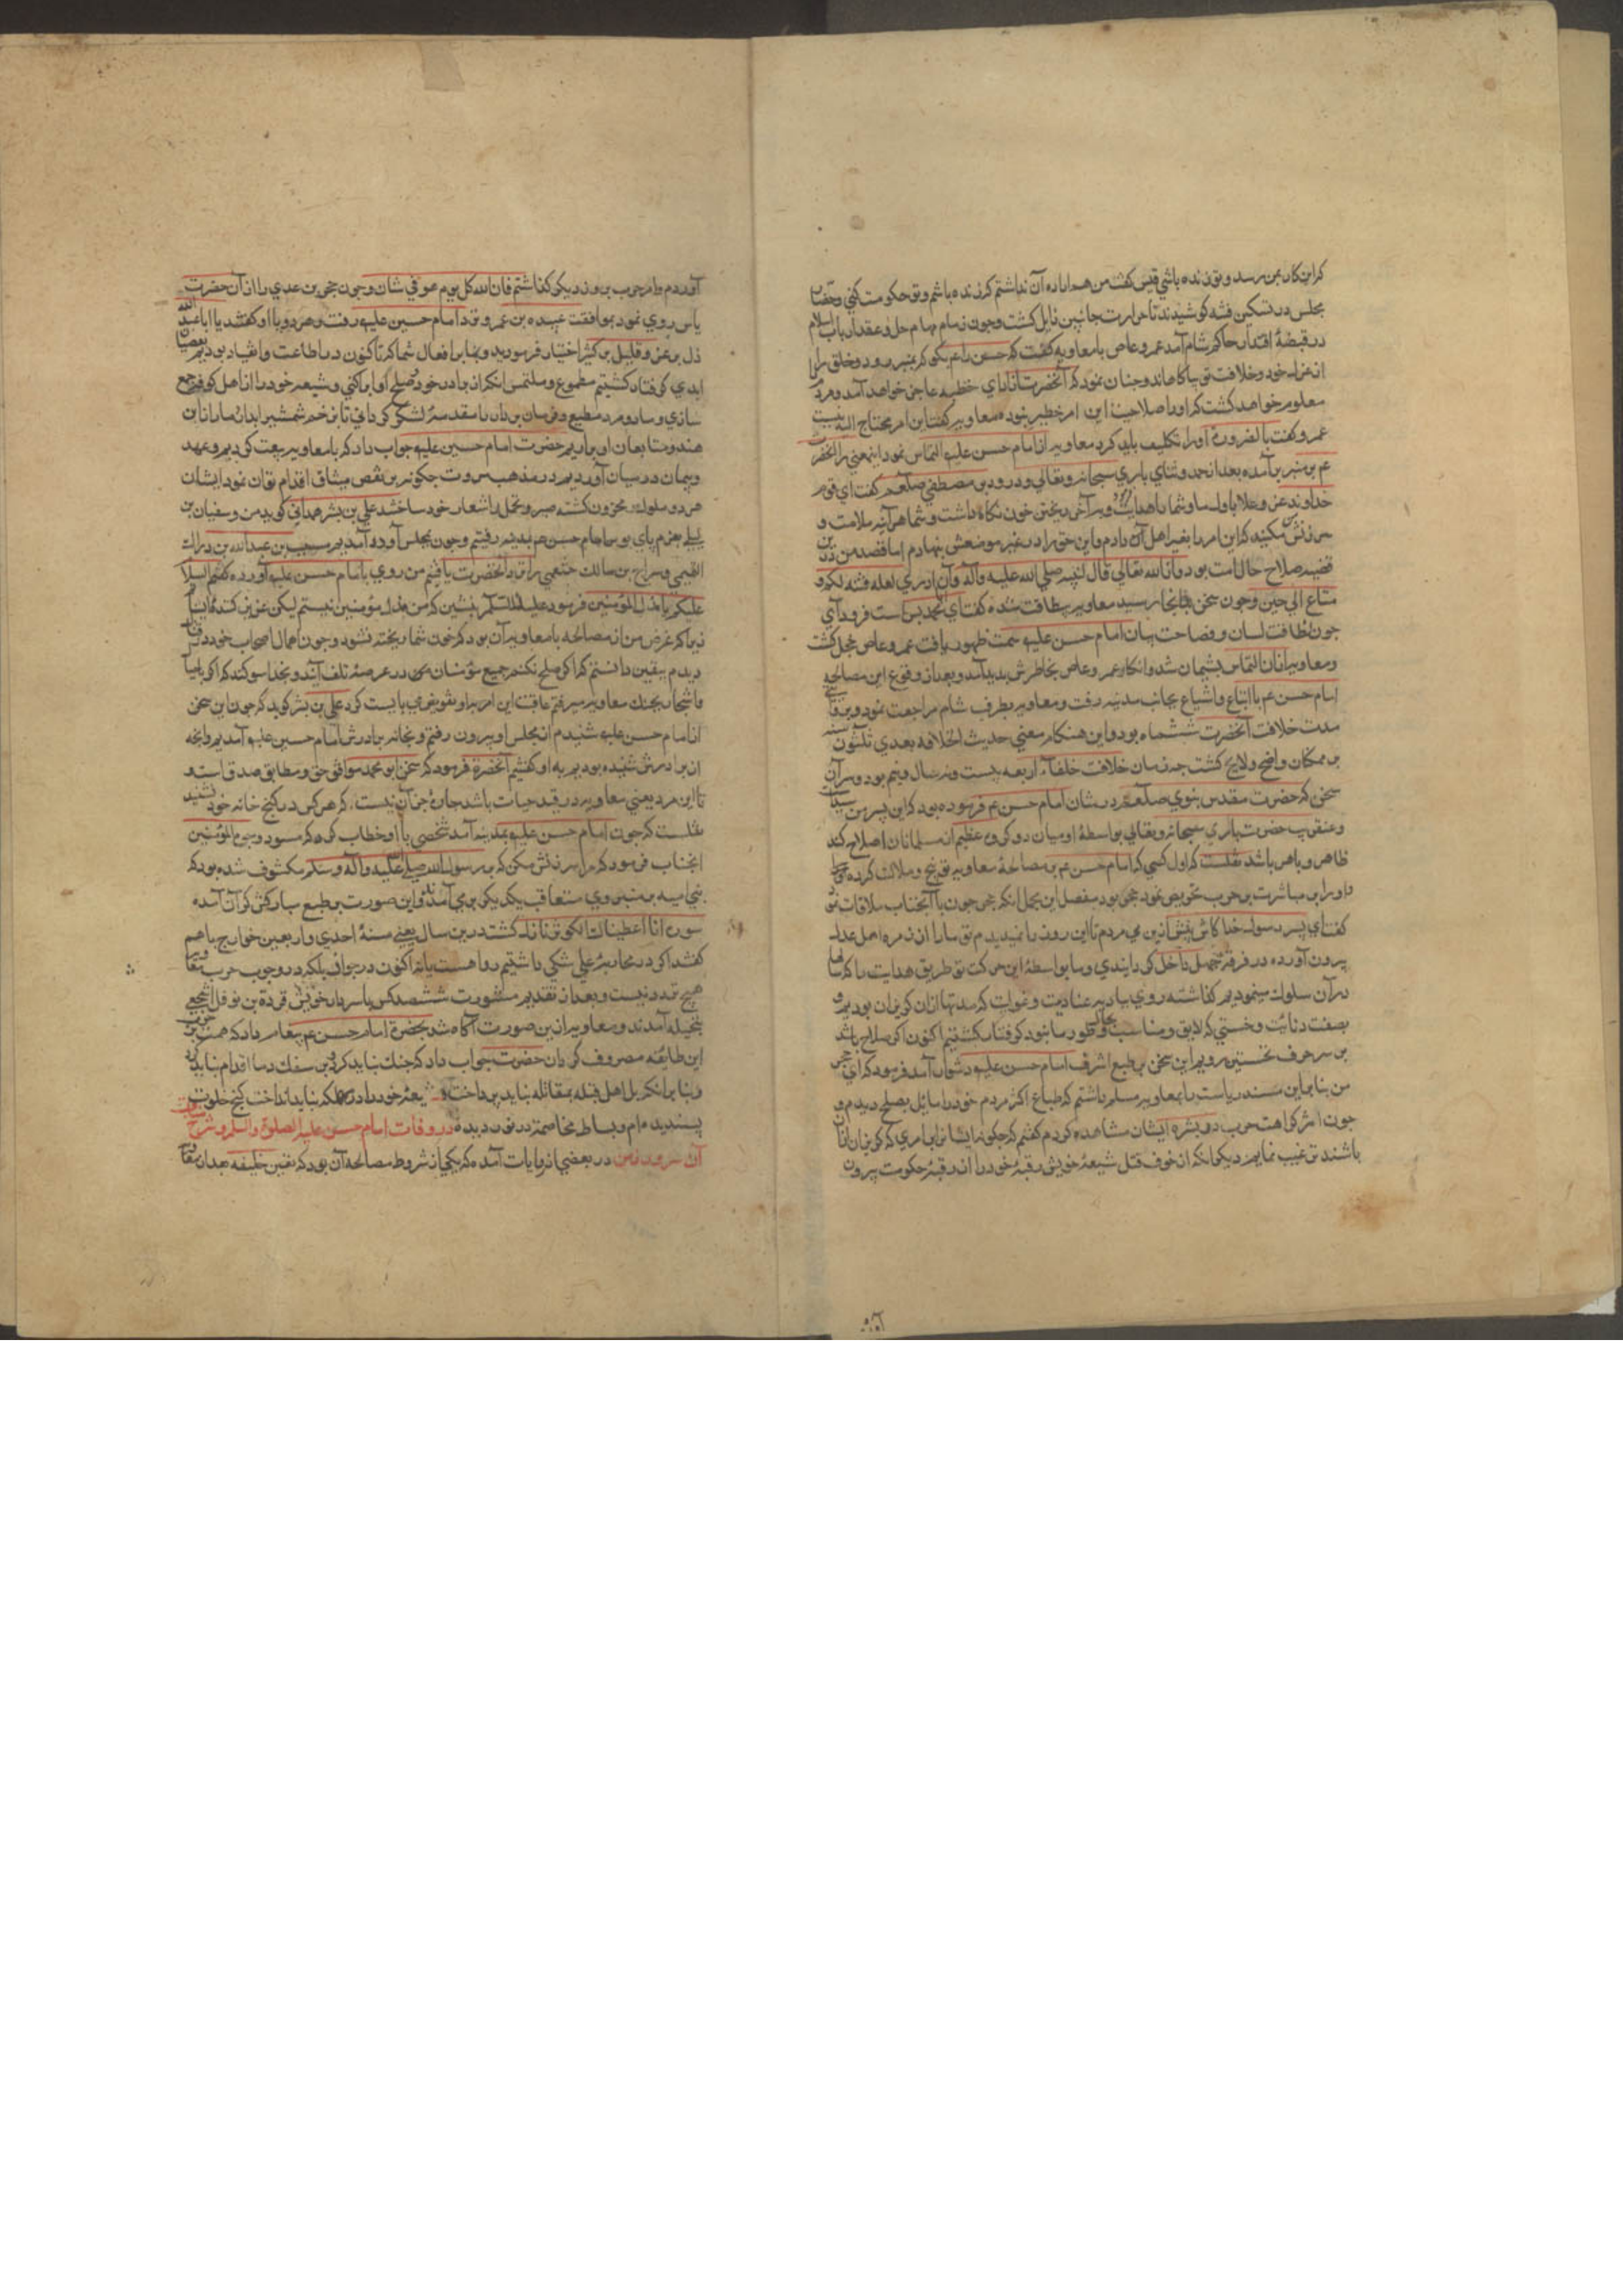 کر این کار بمن رسد و تو زنده باشی قیس گفت من هم اراده آن نداشتم کر زنده باشم و تو حکومت کنی وحضار
مجلس در تسکین فتنه کوشیدند تا حرارت جانبین زایل کشت وجون زمام مهام حل وعقد ارباب اسلام
در قبضهٔ اقتدار حاکم شام آمد عمرو عاص با معاویه کفت که حسن را عم بکو کر بمنبر رود وخلق را از
عزل خود وخلافت تو بیاکاهاند وجنان نمود که آنحضرت از ادای خطبه عاجز خواهد آمد ومردم
معلوم خواهد کشت کر اورا صلاحیت این امر خطیر نبوده معاویه کفت این امر محتاج الیه نیست
عمرو کفت بالضروره اورا تکلیف باید کرد معاویه از امام حسن علیه التماس نمود اینمعنی را انحضرت
عم بر منبر بر آمده بعد از حمد وثنای باری سبحانه وتعالی ودرود بر مصطفی صلعم کفت ای قوم
خداوند عز وعلا باول ما وشما را هدایت وبر آخر ریختن خون نکاه داشت وشما هر آینه ملامت و
سرزنش مکنید کر این امر را بغیر اهل آن دادم واین حق را در غیر موضعش نهادم اما قصد من درین
قضیه صلاح حال امت بود وان الله تعالی قال لنبیه صلی الله علیه وآله وان ادری لعله فتنه لکم و
متاع الی حین وجون سخن باینجا رسید معاویه بیطاقت شده کفت ای محمد بس است فرود آی
جون لطافت لسان وفصاحت بیان امام حسن علیه سمت ظهور یافت عمرو عاص خجل کشت
ومعاویه از ان التماس پشیمان شد وانکار عمرو عاص بخاطرش پدید آمد وبعد از وقوع این مصالحه
امام حسن عم با اتباع واشیاع بجانب مدینه رفت ومعاویه بطرف شام مراجعت نمود
مدت خلافت آنحضرت ششماه بود واین هنکام معنی حدیث الخلافه بعدی ثلثون سنه
بر همکان واضح ولایح کشت جه زمان خلافت خلفاء اربعه بیست ونه سال ونیم بود وسر آن
سخن که حضرت مقدس نبوی صلعم در شان امام حسن عم فرموده بود که این پسر من سیدست
وعنقریب حضرت باری سبحانه وتعالی بواسطهٔ او میان دو کروه عظیم از مسلمانان اصلاح کند
ظاهر وباهر باشد نقلست که اول کسی که امام حسن عم بر مصالحهٔ معاویه توبیخ وملالت کرده
واورا بر مباشرت بر حرب تحریض نمود حجر بود مفصل این مجمل انکه حجر جون با آنجناب ملاقات نمود
کفت ای پسر رسول خدا کاش پیش ازین می مردم تا این روز را نمیدیدم تو ما را از زمره اهل عدل
بیرون آورده در فرقهٔ جهل داخل کردانیدی وما بواسطهٔ این حرکت تو طریق هدایت را که سالها
در آن سلوک مینمودیم کذاشته روی ببادیه عنادیت وغوایت که مدتها از ان کریزان بودیم و
بصفت دنائت وخستی که لایق ومناسب بحال وطور ما نبود کرفتار کشتیم اکنون اکر صلاح باشد
بر سر حرف نخستین رویم این سخن بر طبع اشرف امام حسن علیه دشوار آمد فرمود که ای حجر
من بنا بر این مسند ریاست را بمعاویه مسلم داشتم که طباع اکثر مردم خود را مایل بصلح دیدم و
جون اثر کراهت حرب در بشره ایشان مشاهده کردم کفتم که جکونه ایشانرا بامری که کریزان از ان
باشند ترغیب نمایم دیکر انکه از خوف قتل شیعهٔ خویش رقبهٔ خود را از ربقهٔ حکومت بیرون
آوردم وامر حرب بروز دیکر کذاشتم فان الله کل یوم هو فی شان وجون حجر بن عدی را از آن حضرت
یاس روی نمود بموافقت عبیده بن عمرو نزد امام حسین علیه رفت وهر دو با او کفتند یا ابا عبد الله
ذل بر عز وقلیل بر کثیر اختیار فرمودید وبنا بر افعال شما که تا کنون در اطاعت وانقیاد بودیم
ابدی کرفتار کشتیم مطموع وملتمس انکه برادر خود وصلح او را بکنی وشیعه خود را از اهل کوفه جمع
سازی وما دو مرد مطیع وفرمان بردار را مقدمهٔ لشکر کردانی تا بزخم شمشیر ابدار مار از ان
هندو تابعان او برآریم حضرت امام حسین علیه جواب داد که با معاویه بیعت کردیم وعهد
وپیمان در میان آوردیم در مذهب مروت جکونه بر نقض میثاق اقدام توان نمود ایشان
هر دو ملول ومحزون کشته صبر وتحمل را شعار خود ساختند علی بن بشر همدانی کوید من وسفیان بن
لیلی بعزم پای بوس امام حسن عم بمدینه رفتیم وجون بمجلس آورده آمدیم مسیب بن عبد الله بن
التیمی وسراج بن مالک خثعمی را نزد آنحضرت یافتیم من روی بامام حسن علیه آورده کفتم السلام
علیکم یا مذل المؤمنین فرمود علیک السلام بنشین که من مذل مؤمنین نیستم لیکن عزیز کنندهٔ ایشانم
زیرا که غرض من از مصالحه با معاویه آن بود که خون شما ریخته نشود وجون اهمال اصحاب خود در قتال
دیدم بیقین دانستم کر اکر صلح نکنم جمیع مؤمنان در عرصهٔ تلف آیند وبخدا سوکند که اکر با جبال
واشجار بجنک معاویه میرفتم عاقبت این امر باو تفویض می بایست کرد علی بن بشر کوید که جون این سخن
از امام حسن علیه شنیدم از مجلس او بیرون رفتم وبخانه برادرش امام حسین علیه آمدیم وانچه
از برادرش شنیده بودیم به او کفتیم آنحضرة فرمود که سخن ابو محمد موافق حق ومطابق صدق است و
تا این مرد یعنی معاویه در قید حیات باشد جارهٔ جز آن نیست که هر کس در کنج خانه خود نشیند
نقلست که جون امام حسن علیه بمدینه آمد شخصی با او خطاب کرد که مسود وجوه المؤمنین
انجناب فرمود که مرا سرزنش مکن که بر رسول الله صلی علیه وآله وسلم مکشوف شده بود که
بنی امیه بر منبر وی متعاقب یکدیکر بر می آمدند واین صورت بر طبع مبارکش کران آمده
سوره انا اعطیناک الکوثر نازل کشت درین سال یعنی سنهٔ احدی واربعین خوارج باهم
کفتند اکر در محاربهٔ علی شکی داشتیم روا هست اما اکنون در جواز بلکه در وجوب حرب معاویه
هیج تردد نیست وبعد از تقدیم مشورت ششصد کس با سردار خویش قردة بن نوفل اشجعی
بنخیله آمدند ومعاویه ازین صورت آکاه شد بحضرة امام حسن عم پیغام داد که همت بر حرب
این طایفه مصروف کردان حضرت جواب داد که جنک نباید کرد وبر سفک دما اقدام نباید
وبنا بر انکه با اهل قبله بمقاتله نباید پرداخت وشیعهٔ خود را در مهلکه نباید انداخت کنج خلوت
پسندیده ام وبساط مخاصمه در نوردیده در وفات امام حسن علیه الصلوة والسلم وشرح
آن سرور زمن در بعضی از روایات آمده که یکی از شروط مصالحه آن بود که تعیین خلیفه بعد از معاویه